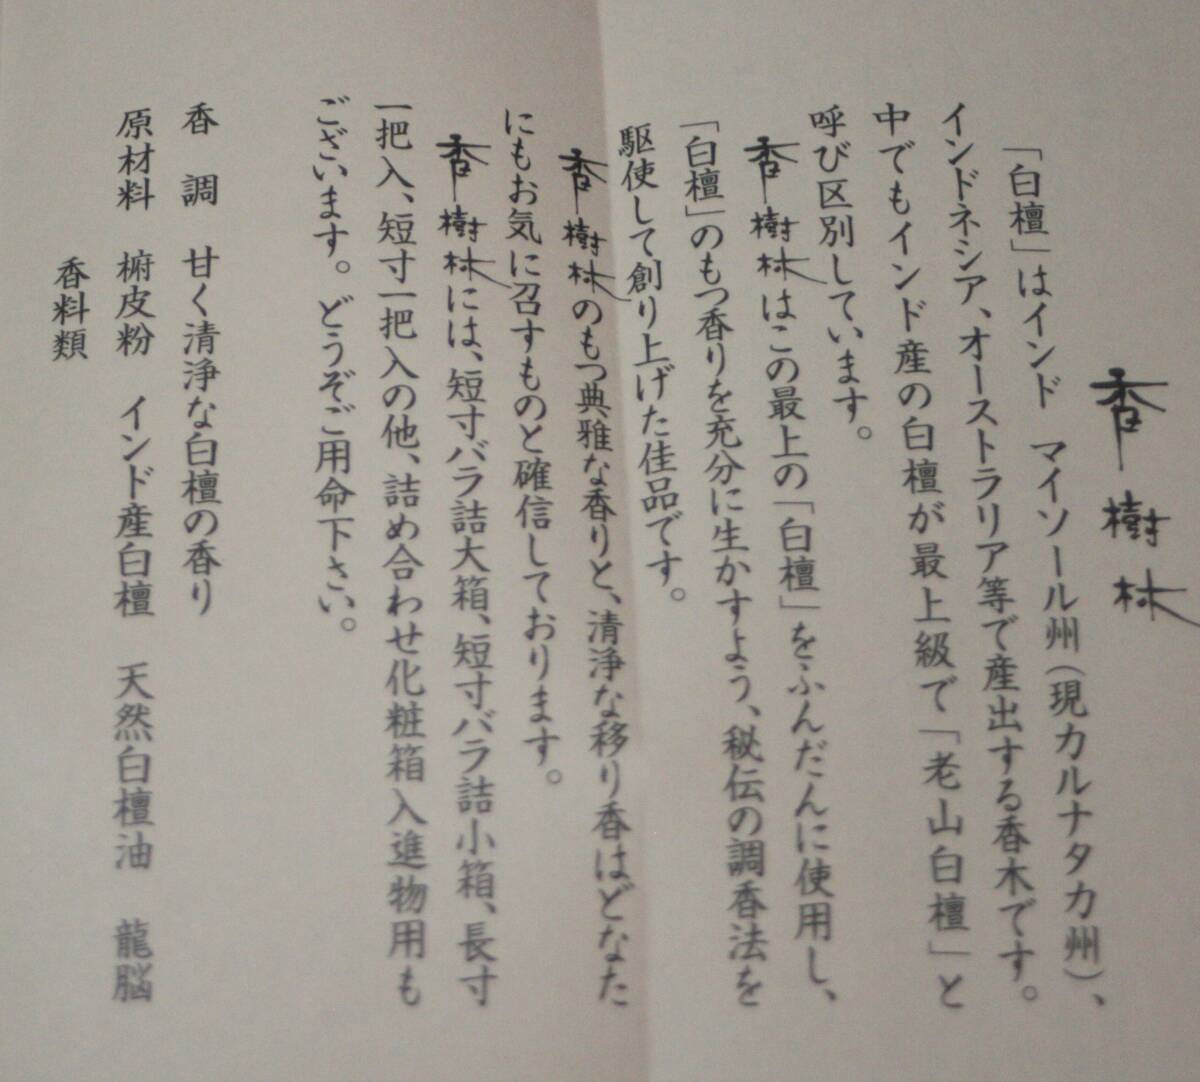 香樹林
「白檀」はインド　マイソール州（現カルナタカ州）、
インドネシア、オーストラリア等で産出する香木です。
中でもインド産の白檀が最上級で「老山白檀」と
呼び区別しています。
香樹林はこの最上の「白檀」をふんだんに使用し、
「白檀」のもつ香りを充分に生かすよう、秘伝の調香法を
駆使して創り上げた佳品です。
香樹林のもつ典雅な香りと、清浄な移り香はどなた
にもお気に召すものと確信しております。
香樹林には、短寸バラ詰大箱、短寸バラ詰小箱、長寸
一把入、短寸一把入の他、詰め合わせ化粧箱入進物用も
ございます。どうぞご用命下さい。
香　調　甘く清浄な白檀の香り
原材料　椨皮粉　インド産白檀　天然白檀油　龍脳
香料類